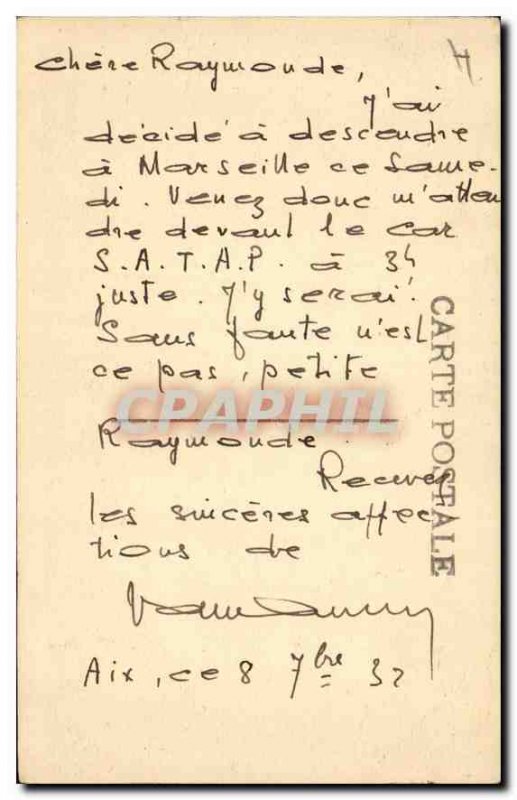 Chère Raymonde,
J'ai
décidé à descendre
à Marseille ce Same-
di. Venez donc m'atten
dre devant le car
S.A.T.A.P. à 3h
juste. J'y serai.
Sans faute n'est
ce pas, petite
Raymonde.
Recevez
les sincères affec
tions de
Aix, ce 8 7bre 32
CARTE POSTALE
CPAPHIL